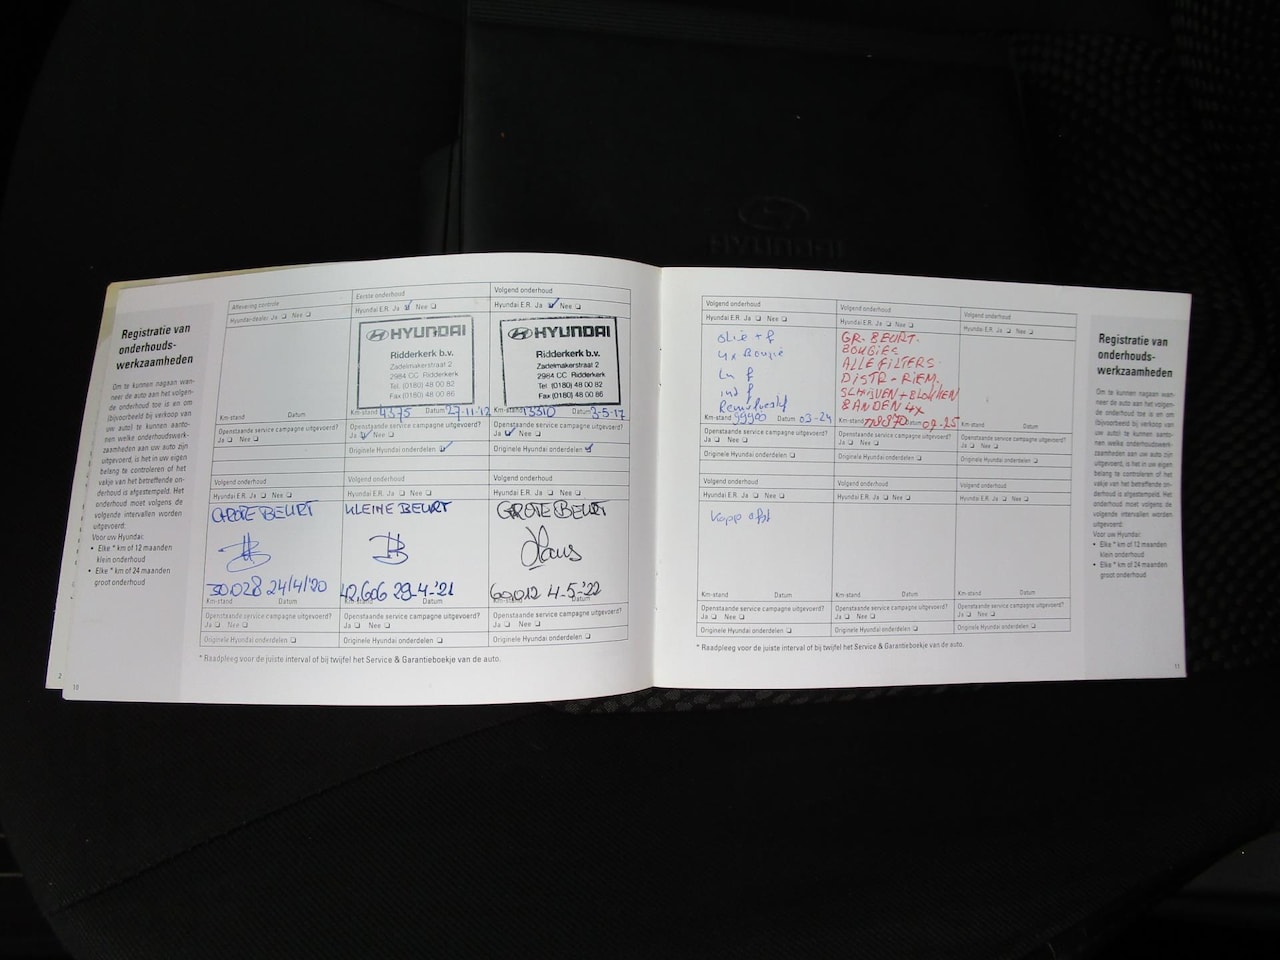 HYUNDAI
Registratie van
onderhouds-
werkzaamheden
Om te kunnen nagaan wan-
neer de auto aan het volgen-
de onderhoud toe is en om
(bijvoorbeeld bij verkoop van
uw auto) te kunnen aanto-
nen welke onderhoudswerk-
zaamheden aan uw auto zijn
uitgevoerd, is het in uw eigen
belang te controleren of het
vakje van het betreffende on-
derhoud is afgestempeld. Het
onderhoud moet volgens de
volgende intervallen worden
uitgevoerd:
Voor uw Hyundai:
• Elke * km of 12 maanden
klein onderhoud
• Elke * km of 24 maanden
groot onderhoud
Aflevering controle
Hyundai-dealer Ja ❑ Nee ❑
Km-stand Datum
Openstaande service campagne uitgevoerd?
Ja ❑ Nee ❑
Eerste onderhoud
Hyundai E.R. Ja ☑ Nee ❑
HYUNDAI
Ridderkerk b.v.
Zadelmakerstraat 2
2984 CC Ridderkerk
Tel. (0180) 48 00 82
Fax (0180) 48 00 86
Km-stand 4375 Datum 27-11-'12
Openstaande service campagne uitgevoerd?
Ja ☑ Nee ❑
Originele Hyundai onderdelen ☑
Volgend onderhoud
Hyundai E.R. Ja ☑ Nee ❑
HYUNDAI
Ridderkerk b.v.
Zadelmakerstraat 2
2984 CC Ridderkerk
Tel (0180) 48 00 82
Fax (0180) 48 00 86
Km-stand 13310 Datum 3-5-17
Openstaande service campagne uitgevoerd?
Ja ☑ Nee ❑
Originele Hyundai onderdelen ☑
Volgend onderhoud
Hyundai E.R. Ja ❑ Nee ❑
GROTE BEURT
30.028 24/4/'20
Km-stand Datum
Openstaande service campagne uitgevoerd?
Ja ❑ Nee ❑
Originele Hyundai onderdelen ❑
Volgend onderhoud
Hyundai E.R. Ja ❑ Nee ❑
KLEINE BEURT
42.606 29-4-'21
Km-stand Datum
Openstaande service campagne uitgevoerd?
Ja ❑ Nee ❑
Originele Hyundai onderdelen ❑
Volgend onderhoud
Hyundai E.R. Ja ❑ Nee ❑
GROTE BEURT
Hans
60.012 4-5-'22
Km-stand Datum
Openstaande service campagne uitgevoerd?
Ja ❑ Nee ❑
Originele Hyundai onderdelen ❑
* Raadpleeg voor de juiste interval of bij twijfel het Service & Garantieboekje van de auto.
2
10
Volgend onderhoud
Hyundai E.R. Ja ❑ Nee ❑
olie + f
4x Bougie
Lu f
int f
Km-stand 99900 Datum 03-24
Openstaande service campagne uitgevoerd?
Ja ❑ Nee ❑
Originele Hyundai onderdelen ❑
Volgend onderhoud
Hyundai E.R. Ja ❑ Nee ❑
GR. BEURT.
BOUGIES
ALLE FILTERS.
DISTR-RIEM.
SCHIJVEN + BLOKKEN
BANDEN 4x
Km-stand 118870 Datum 02-25
Openstaande service campagne uitgevoerd?
Ja ❑ Nee ❑
Originele Hyundai onderdelen ❑
Volgend onderhoud
Hyundai E.R. Ja ❑ Nee ❑
Km-stand Datum
Openstaande service campagne uitgevoerd?
Ja ❑ Nee ❑
Originele Hyundai onderdelen ❑
Volgend onderhoud
Hyundai E.R. Ja ❑ Nee ❑
Km-stand Datum
Openstaande service campagne uitgevoerd?
Ja ❑ Nee ❑
Originele Hyundai onderdelen ❑
Volgend onderhoud
Hyundai E.R. Ja ❑ Nee ❑
Km-stand Datum
Openstaande service campagne uitgevoerd?
Ja ❑ Nee ❑
Originele Hyundai onderdelen ❑
Volgend onderhoud
Hyundai E.R. Ja ❑ Nee ❑
Km-stand Datum
Openstaande service campagne uitgevoerd?
Ja ❑ Nee ❑
Originele Hyundai onderdelen ❑
* Raadpleeg voor de juiste interval of bij twijfel het Service & Garantieboekje van de auto.
Registratie van
onderhouds-
werkzaamheden
Om te kunnen nagaan wan-
neer de auto aan het volgen-
de onderhoud toe is en om
(bijvoorbeeld bij verkoop van
uw auto) te kunnen aanto-
nen welke onderhoudswerk-
zaamheden aan uw auto zijn
uitgevoerd, is het in uw eigen
belang te controleren of het
vakje van het betreffende on-
derhoud is afgestempeld. Het
onderhoud moet volgens de
volgende intervallen worden
uitgevoerd:
Voor uw Hyundai:
• Elke * km of 12 maanden
klein onderhoud
• Elke * km of 24 maanden
groot onderhoud
11